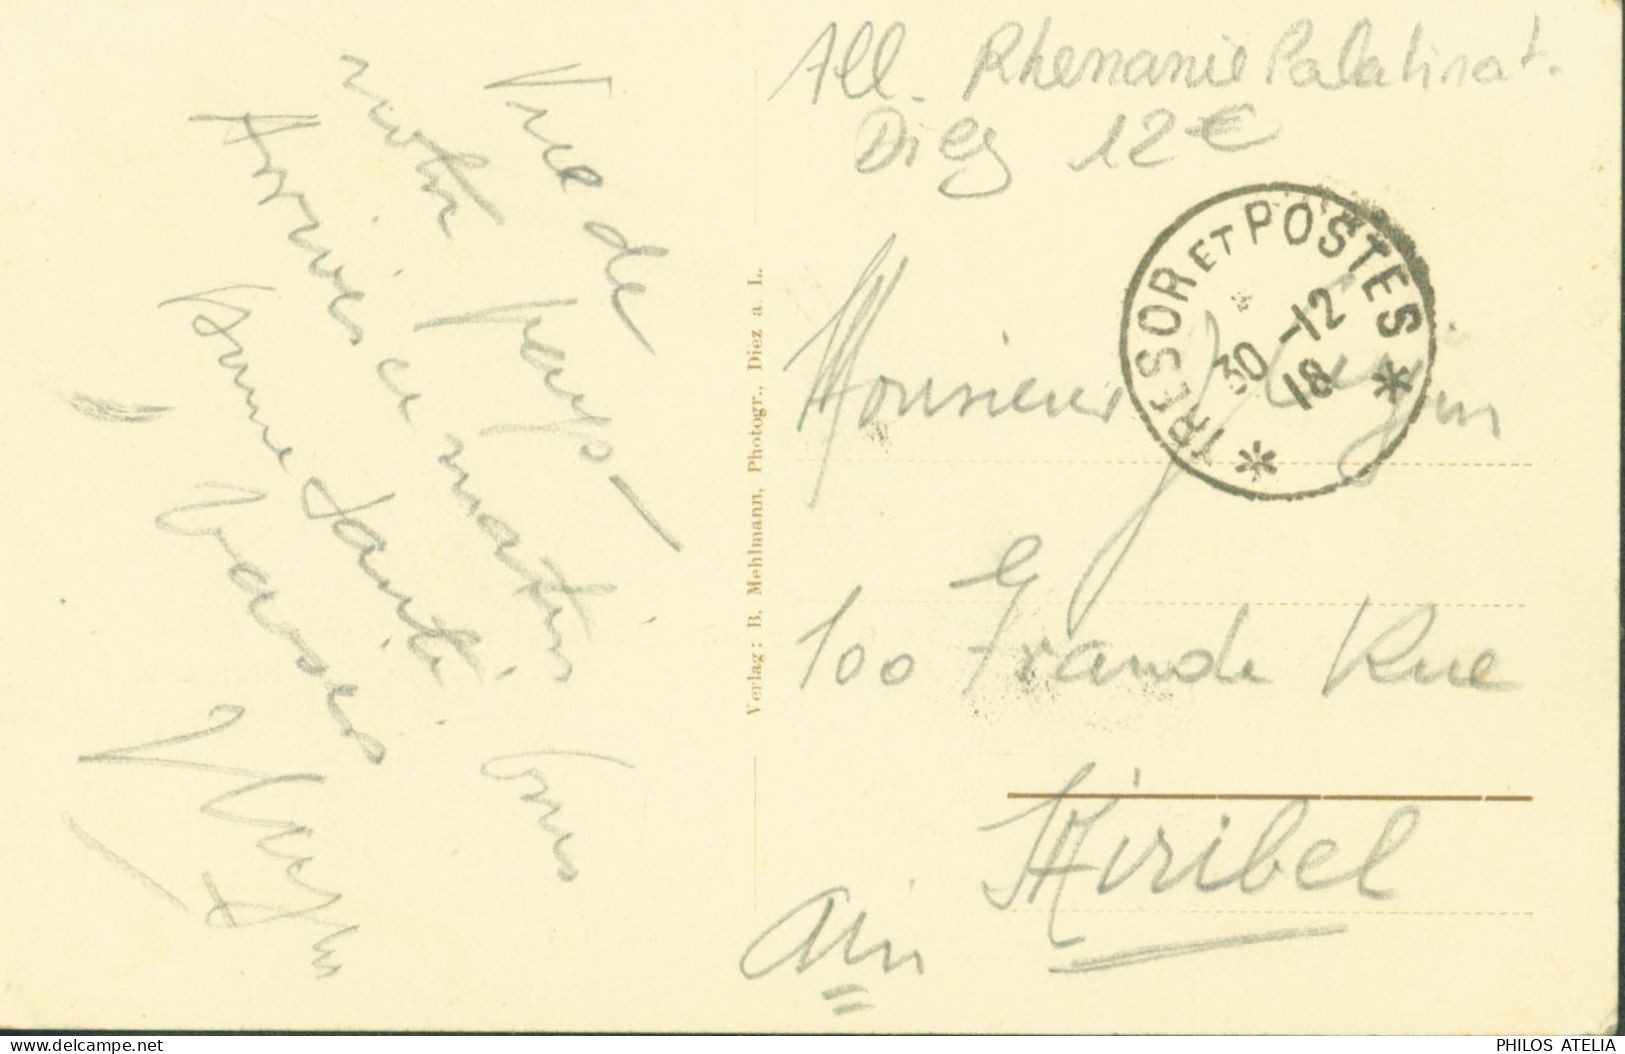 All. Rhenanie Palatinat.
Diez 12€
TRESOR ET POSTES
30 -12
18
* *
Vue de
notre pays –
Arrivés ce matin
Bonne santé. Bons
baisers
Verlag: B. Mehlmann, Photogr., Diez a. L.
Monsieur J
100 Grande Rue
Miribel
Ain
delcampe.net
PHILOS ATELIA